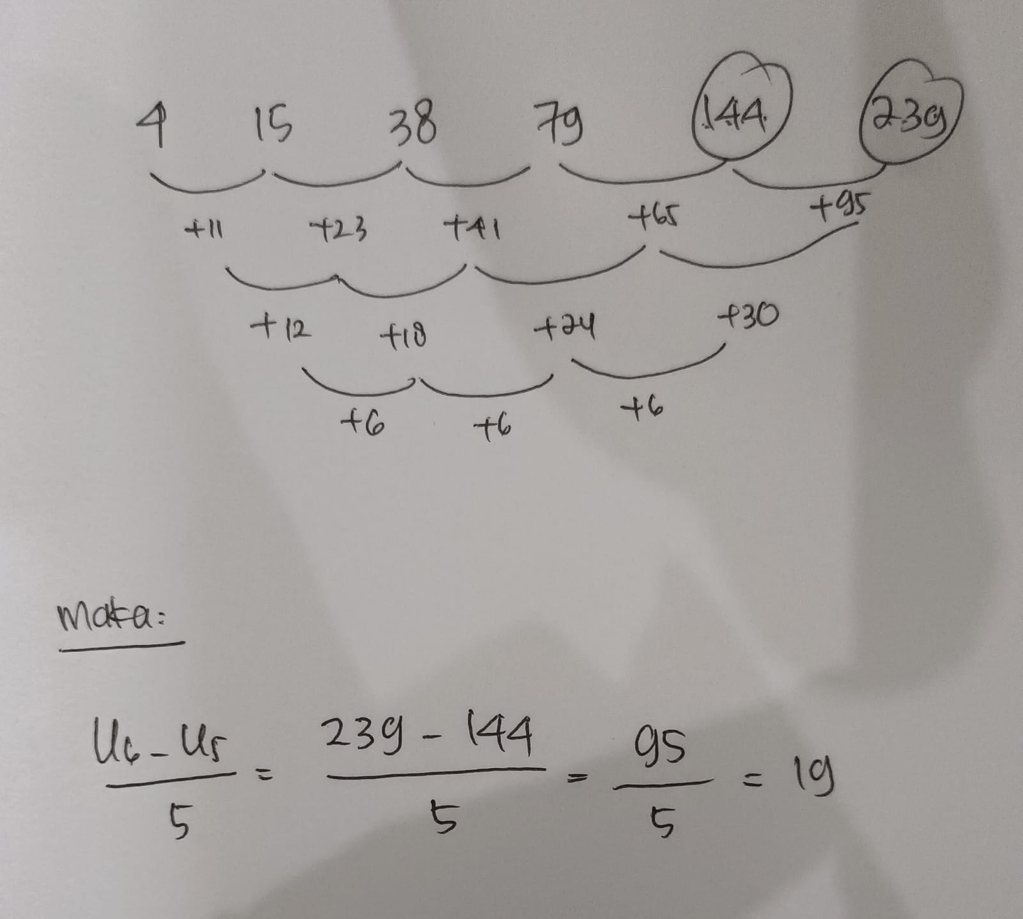 4 15 38 79 144 239
+11 +23 +41 +65 +95
+12 +18 +24 +30
+6 +6 +6
Maka:
U6 - U5 / 5 = 239 - 144 / 5 = 95 / 5 = 19